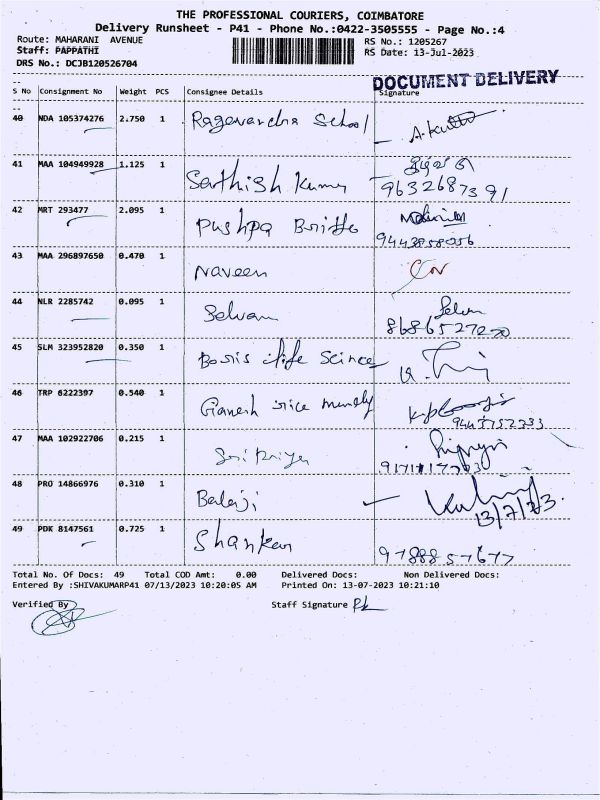 THE PROFESSIONAL COURIERS, COIMBATORE
Delivery Runsheet - P41 - Phone No.:0422-3505555 - Page No.:4
Route: MAHARANI AVENUE
RS No.: 1205267
Staff: PAPPATHI
RS Date: 13-Jul-2023
DRS No.: DCJB120526704
DOCUMENT DELIVERY
S No Consignment No Weight PCS Consignee Details Signature
40 NDA 105374276 2.750 1 Ragavandra School
41 MAA 104949928 1.125 1 Sathish Kumar
9632687391
42 MRT 293477 2.095 1 Pushpa Britto
9443858056
43 MAA 296897650 0.470 1 Naveen
44 NLR 2285742 0.095 1 Selvam Selvam
8686527270
45 SLM 323952820 0.350 1 Boris life Science
46 TRP 6222397 0.540 1 Ganesh rice mundy
9443752333
47 MAA 102922706 0.215 1 Sri Priya
48 PRO 14866976 0.310 1 Balaji
13/7/23.
49 PDK 8147561 0.725 1 Shankar
9788857677
Total No. Of Docs: 49 Total COD Amt: 0.00 Delivered Docs: Non Delivered Docs:
Entered By :SHIVAKUMARP41 07/13/2023 10:20:05 AM Printed On: 13-07-2023 10:21:10
Verified By Staff Signature